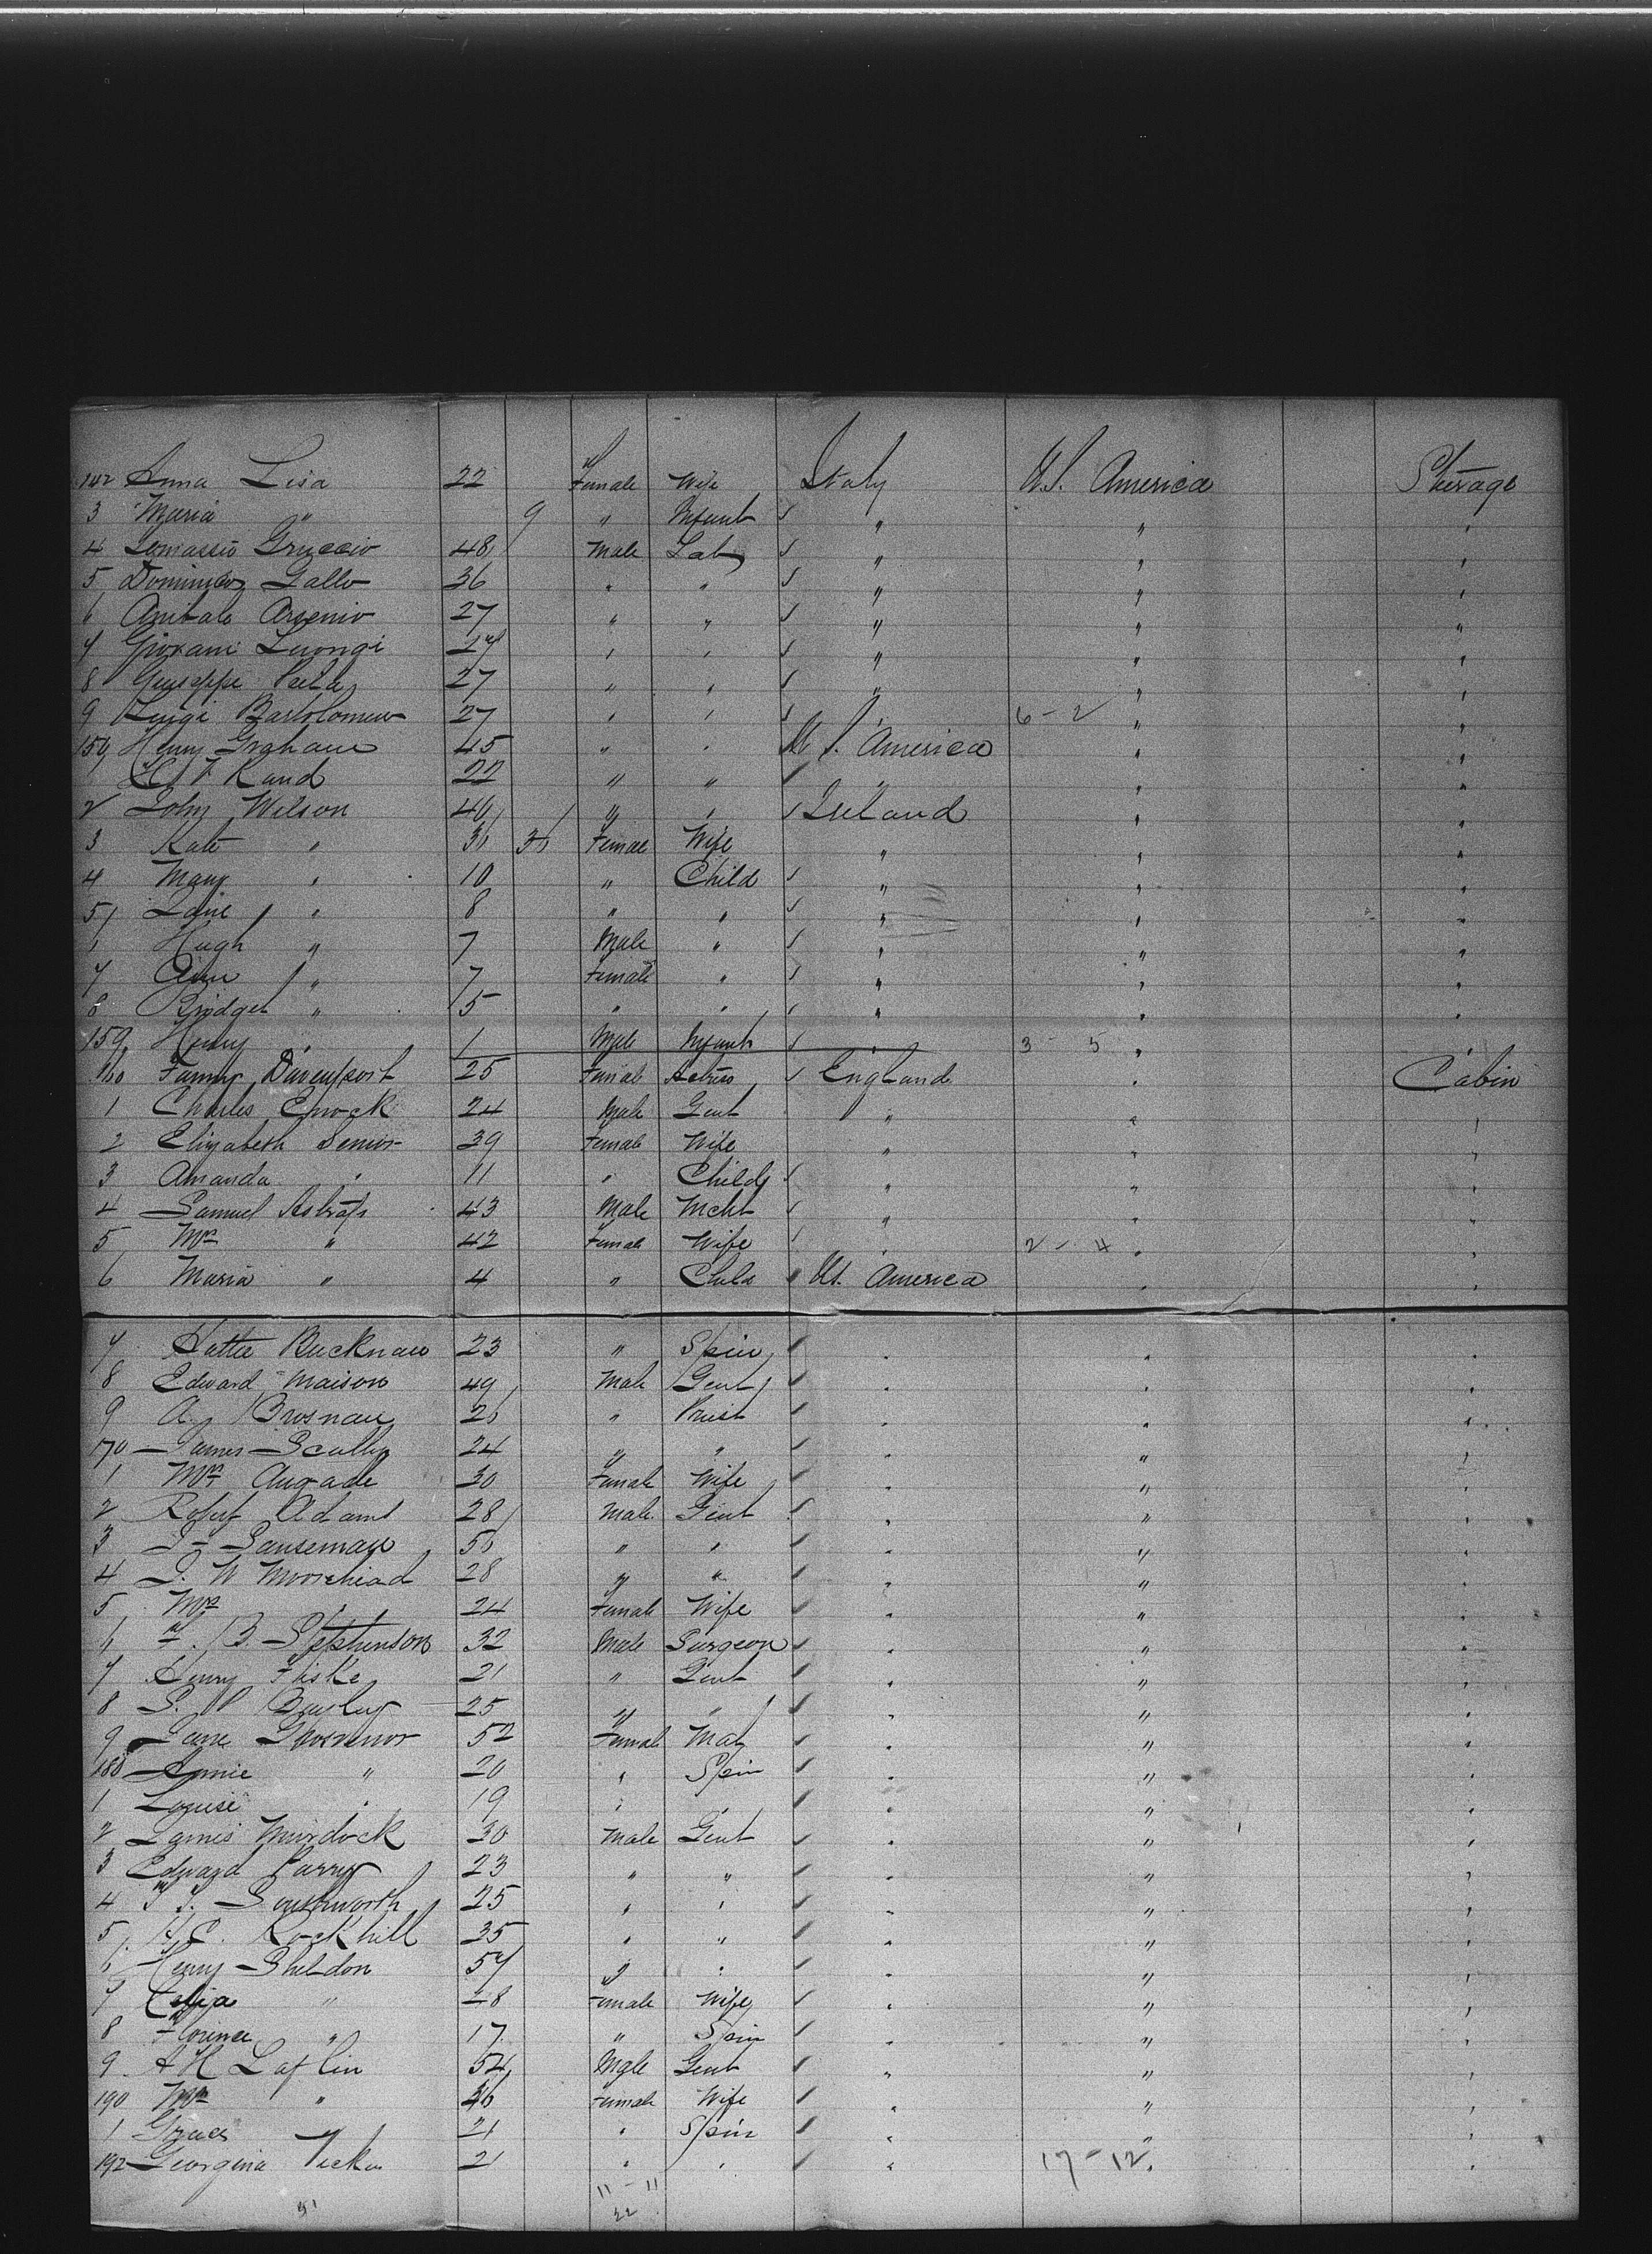 142 Anna Lisa 22 Female Wife Italy U.S. America Steerage
3 Maria " 9 " Infant " " "
4 Tomassio Gruccio 48 Male Lab " " "
5 Domineco Gallo 36 " " " " "
6 Anibale Arsenio 27 " " " " "
7 Giovani Luongi 27 " " " " "
8 Giuseppe 27 " " " " "
9 Luigi Bartolomew 27 " " " 6-2 " "
150 Henry Graham 45 " " U S. America " "
1 Rand 22 " " " " "
2 John Wilson 40 " " Ireland " "
3 Kate " 36 36 Female Wife " " "
4 Mary " 10 " Child " " "
5 Jane " 8 " " " " "
6 Hugh " 7 Male " " " "
7 Ann " 7 Female " " " "
8 Bridget " 5 " " " " "
159 Henry " 1 Male Infant " 3 5 " "
160 Fanny Davenport 25 Female Actress England " Cabin
1 Charles Enock 24 Male Gent " " "
2 Elizabeth Senior 39 Female Wife " " "
3 Amanda " 11 " Child " " "
4 Samuel 43 Male Mcht " " "
5 Mrs " 42 Female Wife " 2-4 " "
6 Maria " 4 " Child US. America " "
7 Hattie Bucknam 23 " Spin " " "
8 Edward Maison 49 Male Gent " " "
9 A. Brosnan 26 " Priest " " "
170 James Scully 24 " " " " "
1 Mrs 30 Female Wife " " "
2 Robert Adams 28 Male Gent " " "
3 Sauseman 50 " " " " "
4 J. W Moorehead 28 " " " " "
5 Mrs " 24 Female Wife " " "
6 F. B. Stephenson 32 Male Surgeon " " "
7 Henry Fiske 21 " Gent " " "
8 S. P 25 " " " " "
9 Jane Grosvenor 52 Female Mat " " "
180 Annie " 20 " Spin " " "
1 Louise " 19 " " " " "
2 James Murdock 30 Male Gent " " "
3 Edward Parry 23 " " " " "
4 Southworth 25 " " " " "
5 H. C. Rockhill 35 " " " " "
6 Henry Sheldon 57 " " " " "
7 Celia " 48 Female Wife " " "
8 Florence " 17 " Spin " " "
9 A H Laflin 54 Male Gent " " "
190 Mrs " 46 Female Wife " " "
1 Grace " 21 " Spin " " "
192 Georgina 21 " " " 17-12 " "
51 11-11
22